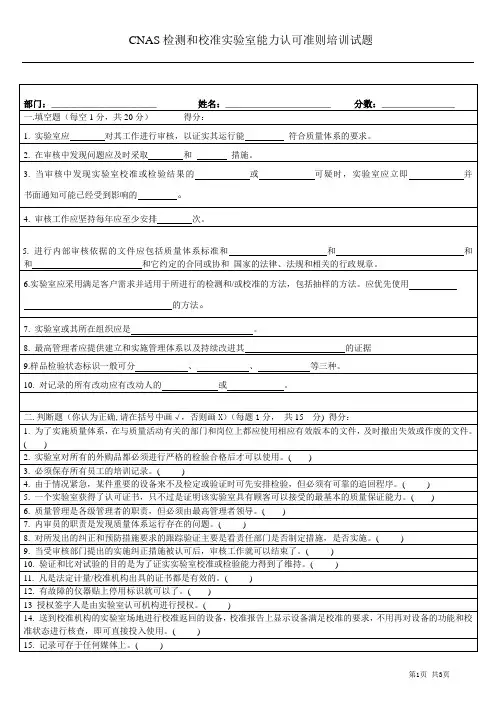 CNAS 检测和校准实验室能力认可准则培训试题
部门：____________ 姓名：____________ 分数：____________
一.填空题（每空1分，共20分） 得分：
1. 实验室应______对其工作进行审核，以证实其运行能______ 符合质量体系的要求。
2. 在审核中发现问题应及时采取______ 和 ______ 措施。
3. 当审核中发现实验室校准或检验结果的______ 或______ 可疑时，实验室应立即______ 并
书面通知可能已经受到影响的______ 。
4. 审核工作应坚持每年应至少安排______次。
5. 进行内部审核依据的文件应包括质量体系标准和______ 和______ 和
和______ 和它约定的合同或协和 国家的法律、法规和相关的行政规章。
6.实验室应采用满足客户需求并适用于所进行的检测和/或校准的方法，包括抽样的方法。应优先使用______
______ 的方法。
7. 实验室或其所在组织应是______ 。
8. 最高管理者应提供建立和实施管理体系以及持续改进其______ 的证据
9.样品检验状态标识一般可分______ 、______ 、______ 等三种。
10. 对记录的所有改动应有改动人的______ 或______ 。
二.判断题（你认为正确,请在括号中画√，否则画X）（每题1分， 共15 分) 得分：
1. 为了实施质量体系，在与质量活动有关的部门和岗位上都应使用相应有效版本的文件，及时撤出失效或作废的文件。
( )
2. 实验室对所有的外购品都必须进行严格的检验合格后才可以使用。( )
3. 必须保存所有员工的培训记录。( )
4. 由于情况紧急，某件重要的设备来不及检定或验证时可先安排检验，但必须有可靠的追回程序。( )
5. 一个实验室获得了认可证书，只不过是证明该实验室具有顾客可以接受的最基本的质量保证能力。( )
6. 质量管理是各级管理者的职责，但必须由最高管理者领导。( )
7. 内审员的职责是发现质量体系运行存在的问题。( )
8. 对所发出的纠正和预防措施要求的跟踪验证主要是看责任部门是否制定措施，是否实施。( )
9. 当受审核部门提出的实施纠正措施被认可后，审核工作就可以结束了。( )
10. 验证和比对试验的目的是为了证实实验室校准或检验能力得到了维持。( )
11. 凡是法定计量/校准机构出具的证书都是有效的。( )
12. 有故障的仪器贴上停用标识就可以了。( )
13 授权签字人是由实验室认可机构进行授权。( )
14. 送到校准机构的实验室场地进行校准返回的设备，校准报告上显示设备满足校准的要求，不用再对设备的功能和校
准状态进行核查，即可直接投入使用。( )
15. 记录可存于任何媒体上。( )
第1页 共8页